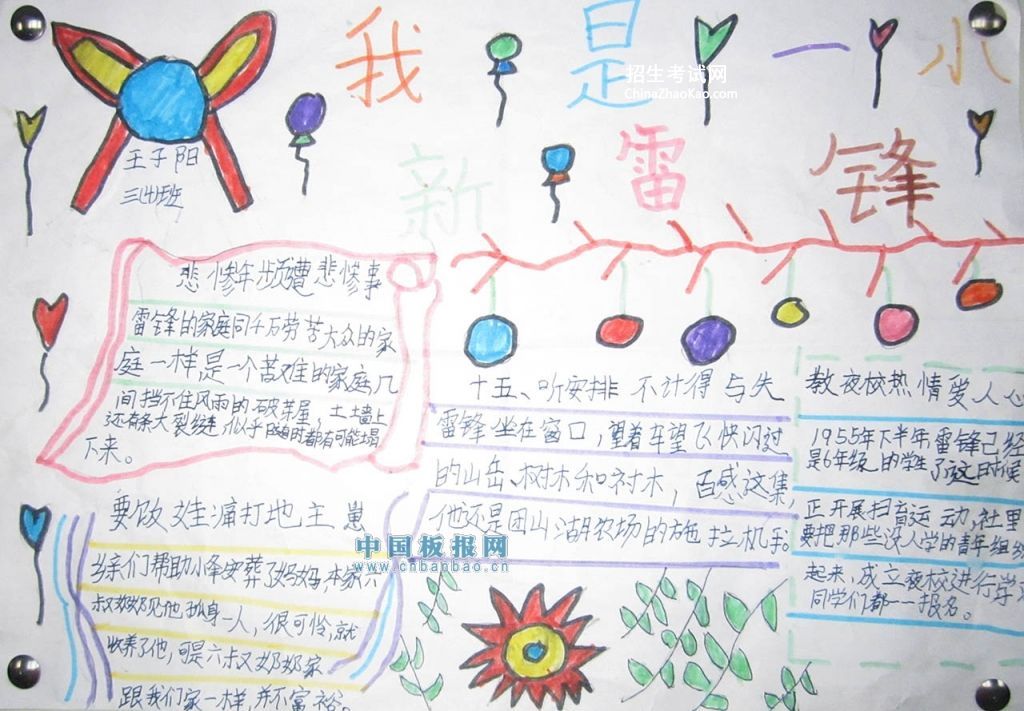 我是一小
新雷锋
招生考试网
ChinaZhaoKao.com
王子阳
三(4)班
悲惨年步页遭悲惨事
雷锋的家庭同千万劳苦大众的家
庭一样,是一个苦难的家庭几
间挡不住风雨的破茅屋,土土墙上
还有条大裂缝,似乎随时都有可能塌
下来。
十五、听安排 不计得与失
雷锋坐在窗口,望着车望飞快闪过
的山岳、树木和村木,百感这集,
他还是团山湖农场的拖拉机手。
教夜校热情爱人心
1955年下半年雷锋已经
是6年级的学生了这时候
正开展扫盲运动,社里
要把那些没入学的青年组织
起来,成立夜校进行学
同学们都一一报名。
要饭娃痛打地主崽
乡亲们帮助小锋安葬了妈妈,本家六
叔奶奶见他孤身一人,很可怜,就
收养了他,可是六叔奶奶家
跟我们家一样,并不富裕。
中国板报网
www.cnbanbao.cn